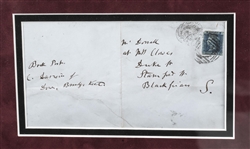 Book Post
C. Darwin
Down, Bromley Kent
Mr Sowell
at Mr Clowes
Duke St
Stamford St
Blackfriars
S.